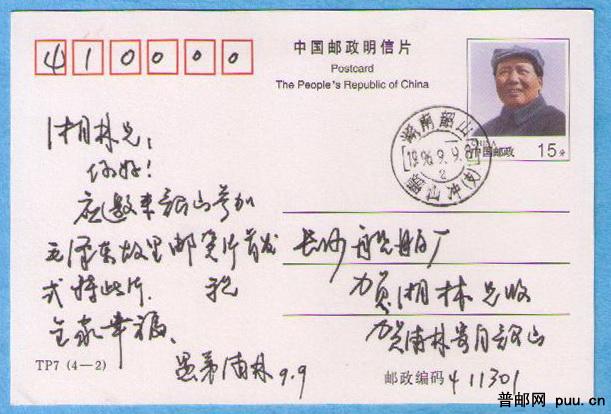 410000
中国邮政明信片
Postcard
The People's Republic of China
中国邮政 15分
湖南韶山
1996.9.9.8
2
湘林兄:
你好!
应邀来韶山参加
毛泽东故里邮资片首发
式特此片. 祝
全家幸福、
愚弟 林 9.9
长沙船舶厂
贺湘林兄收
贺 林寄自韶山
TP7 (4—2)
邮政编码 411301
普邮网 puu.cn